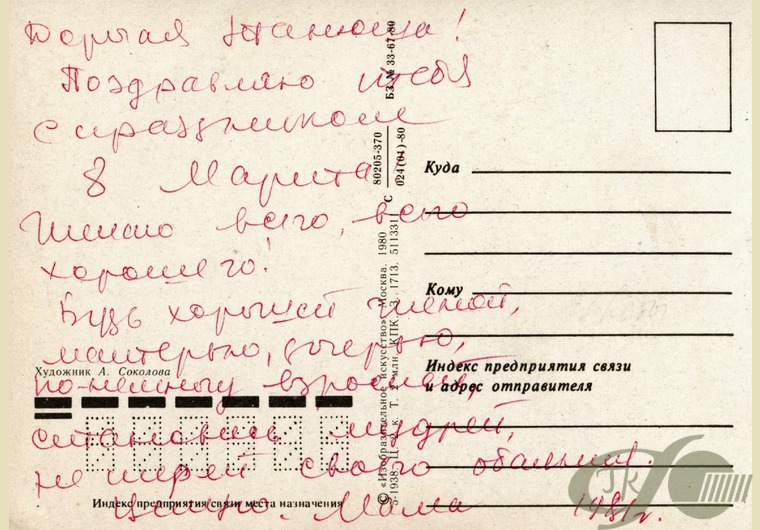 Дорогая Танюша!
Поздравляю тебя
с праздником
8 Марта
Желаю всего, всего
хорошего!
Будь хорошей женой,
матерью, дочерью,
по-немногу взрослей,
становись мудрей,
не теряй своего обаяния.
Целую. Мама 1981г.
Художник А. Соколова
Индекс предприятия связи места назначения
© «Изобразительное искусство». Москва. 1980
5-1938. Ц. 3 к. Т. 2 млн. КПК. З. 1713. 511331 С
80205-370
024(01)-80
БЗ № 33-67-80
Куда
Кому
Индекс предприятия связи
и адрес отправителя